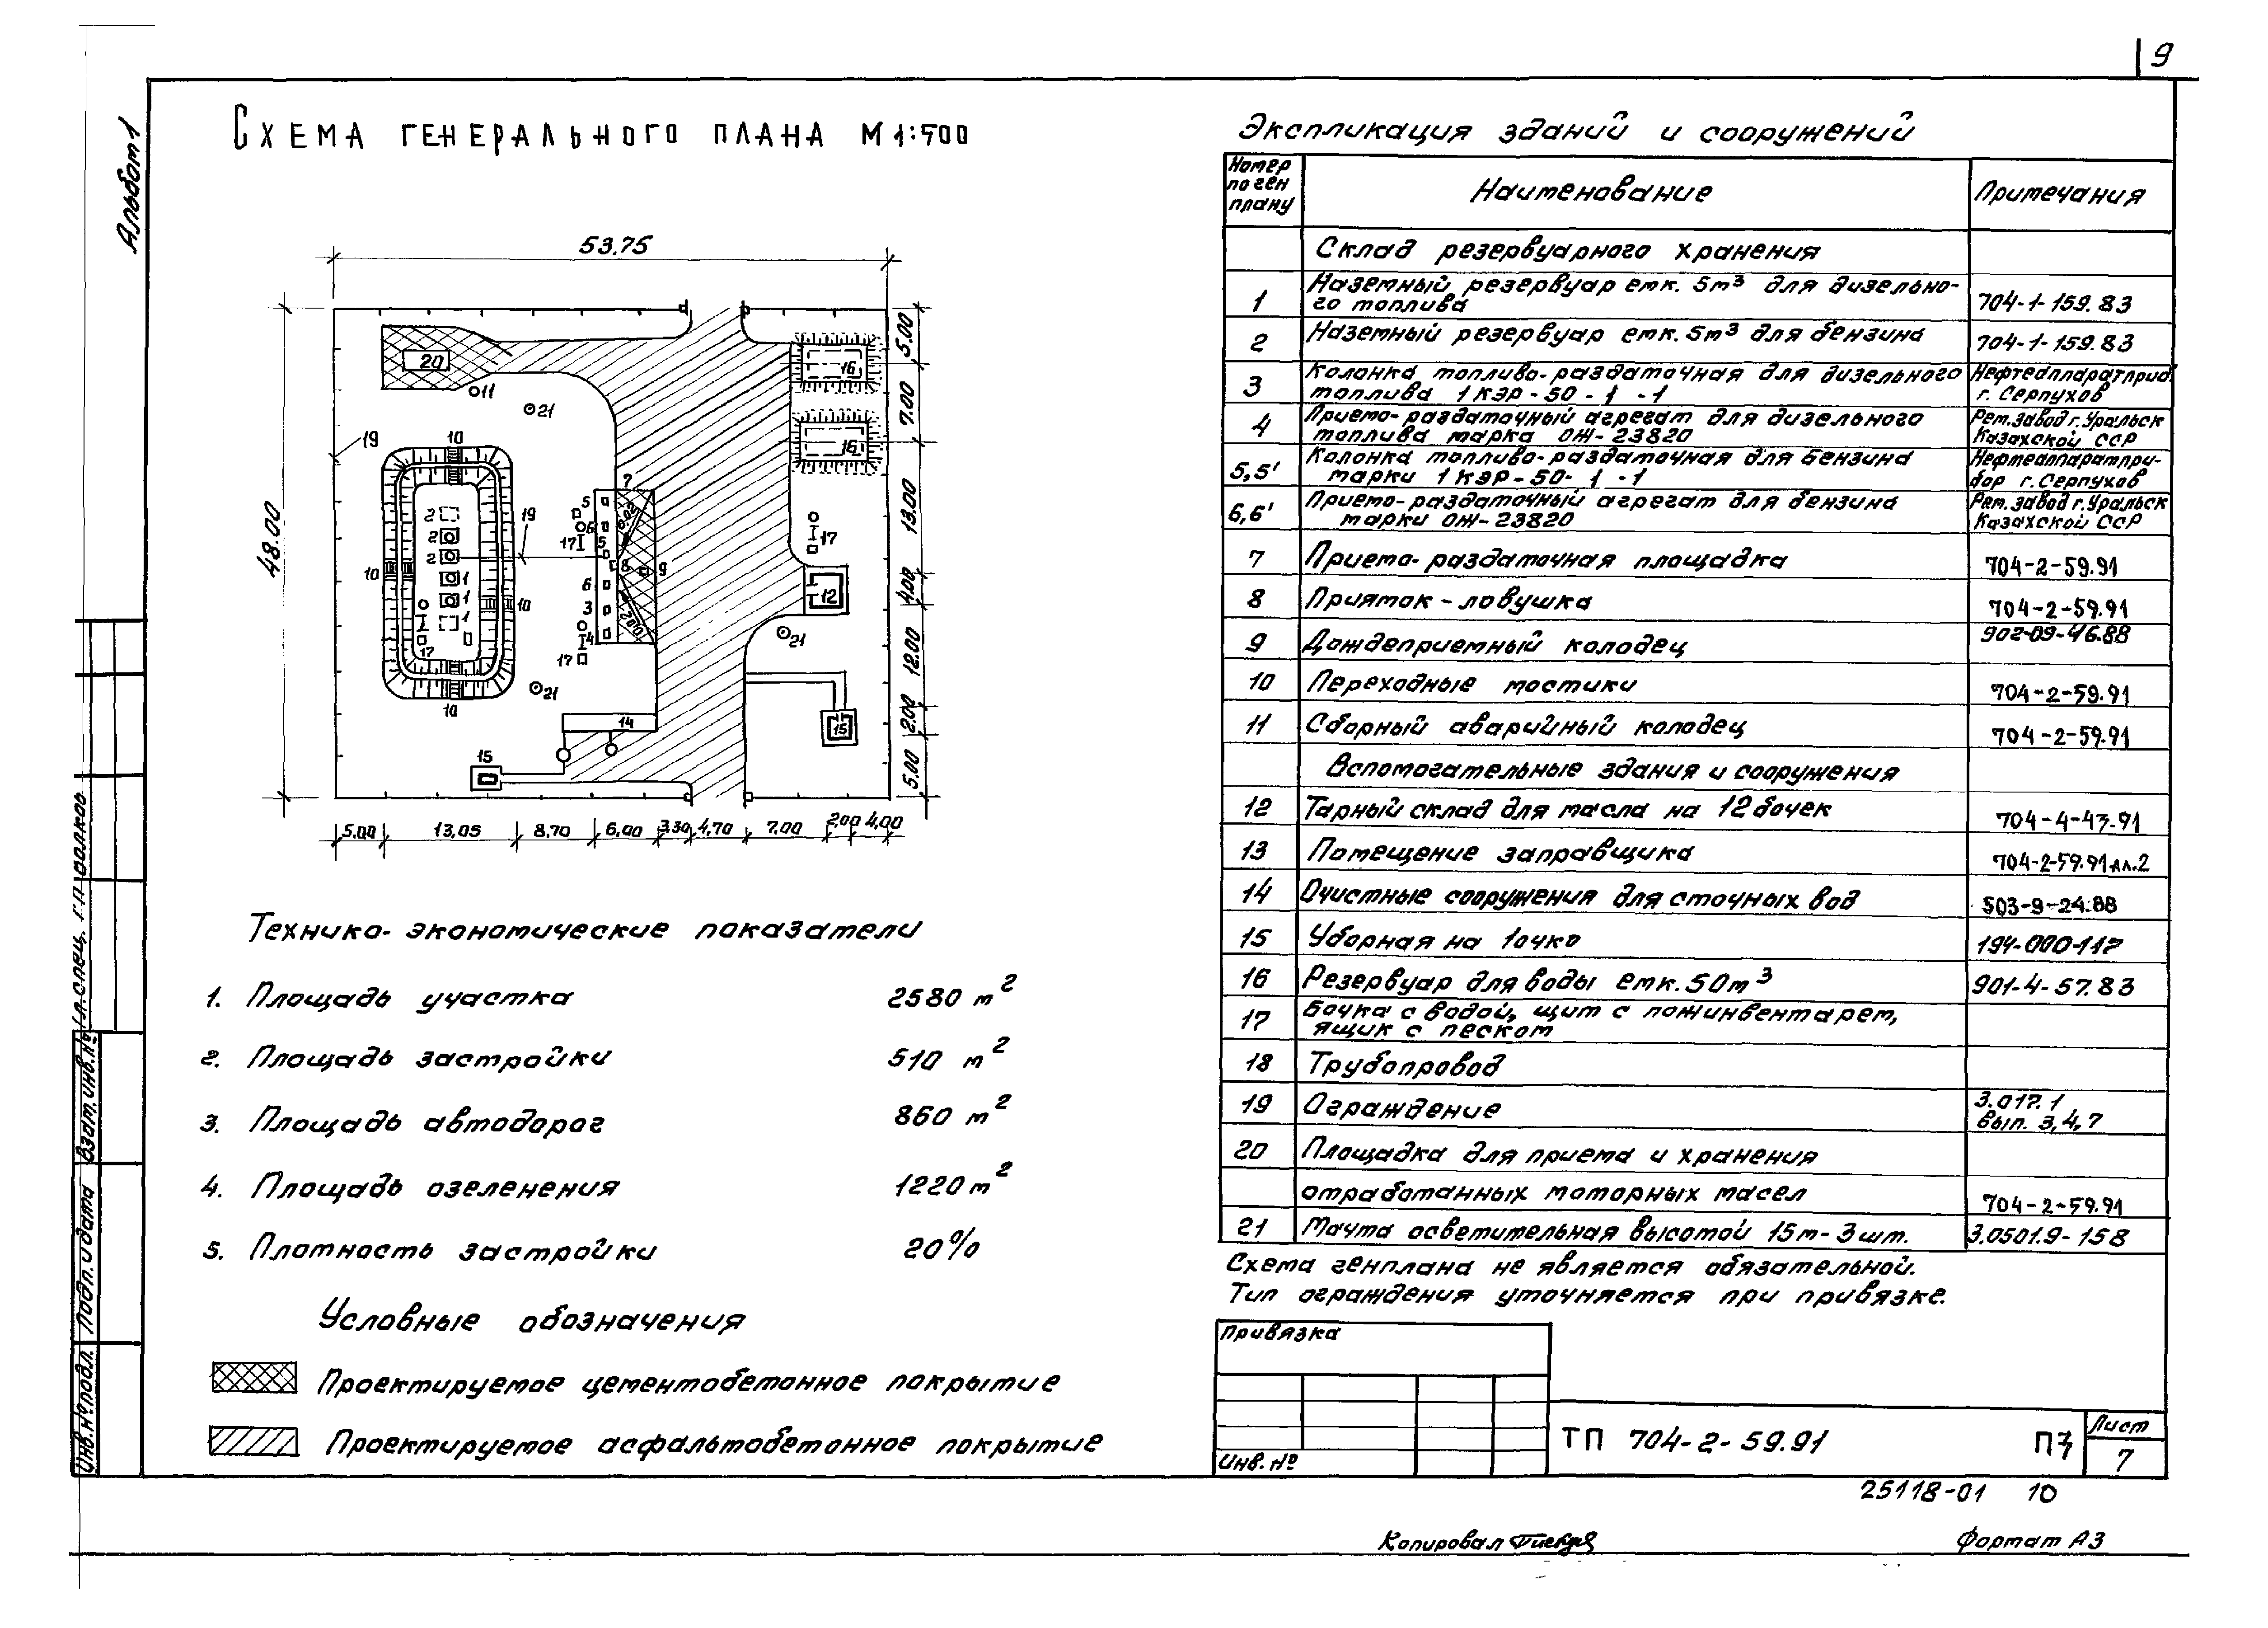 9
Альбом 1
Схема генерального плана М 1:500
53.75
48.00
5.00
7.00
13.00
4.00
12.00
2.00
5.00
5.00 13,05 8,70 6,00 3.30 4,70 7,00 2,00 4,00
20
11
21
16
16
19
10
7
5
2
19
6
17
2
5
17
2
10
8
9
1
6
12
1
10
3
1
4
21
17
17
21
10
14
15
15
0.02
Технико-экономические показатели
1. Площадь участка 2580 м²
2. Площадь застройки 510 м²
3. Площадь автодорог 860 м²
4. Площадь озеленения 1220 м²
5. Плотность застройки 20%
Условные обозначения
Проектируемое цементобетонное покрытие
Проектируемое асфальтобетонное покрытие
Экспликация зданий и сооружений
Номер по ген плану Наименование Примечания
Склад резервуарного хранения
1 Наземный резервуар емк. 5м³ для дизельно-
го топлива 704-1-159.83
2 Наземный резервуар емк. 5м³ для бензина 704-1-159.83
3 Колонка топливо-раздаточная для дизельного Нефтеаппаратприб.
топлива 1 КЭР-50-1-1 г. Серпухов
4 Приемо-раздаточный агрегат для дизельного Рем.завод г.Уральск
топлива марка ОЖ-23820 Казахской ССР
5,5' Колонка топливо-раздаточная для бензина Нефтеаппаратпри-
марки 1 КЭР-50-1-1 бор г. Серпухов
6,6' Приемо-раздаточный агрегат для бензина Рем.завод г.Уральск
марки ОЖ-23820 Казахской ССР
7 Приемо-раздаточная площадка 704-2-59.91
8 Приямок-ловушка 704-2-59.91
9 Дождеприемный колодец 902-09-46.88
10 Переходные мостики 704-2-59.91
11 Сборный аварийный колодец 704-2-59.91
Вспомогательные здания и сооружения
12 Тарный склад для масла на 12 бочек 704-4-43.91
13 Помещение заправщика 704-2-59.91 ал.2
14 Очистные сооружения для сточных вод 503-9-24.88
15 Уборная на 1 очко 194-000-112
16 Резервуар для воды емк. 50м³ 901-4-57.83
17 Бочка с водой, щит с пожинвентарем,
ящик с песком
18 Трубопровод
19 Ограждение 3.017.1
вып. 3,4,7
20 Площадка для приема и хранения
отработанных моторных масел 704-2-59.91
21 Мачта осветительная высотой 15м-3шт. 3.0501.9-158
Схема генплана не является обязательной.
Тип ограждения уточняется при привязке.
Привязка
Инв. №
ТП 704-2-59.91 ПЗ
Лист
7
25118-01 10
Копировал
Формат А3
Гл. спец.
Взам. инв. №
Подп. и дата
Инв. № подл.